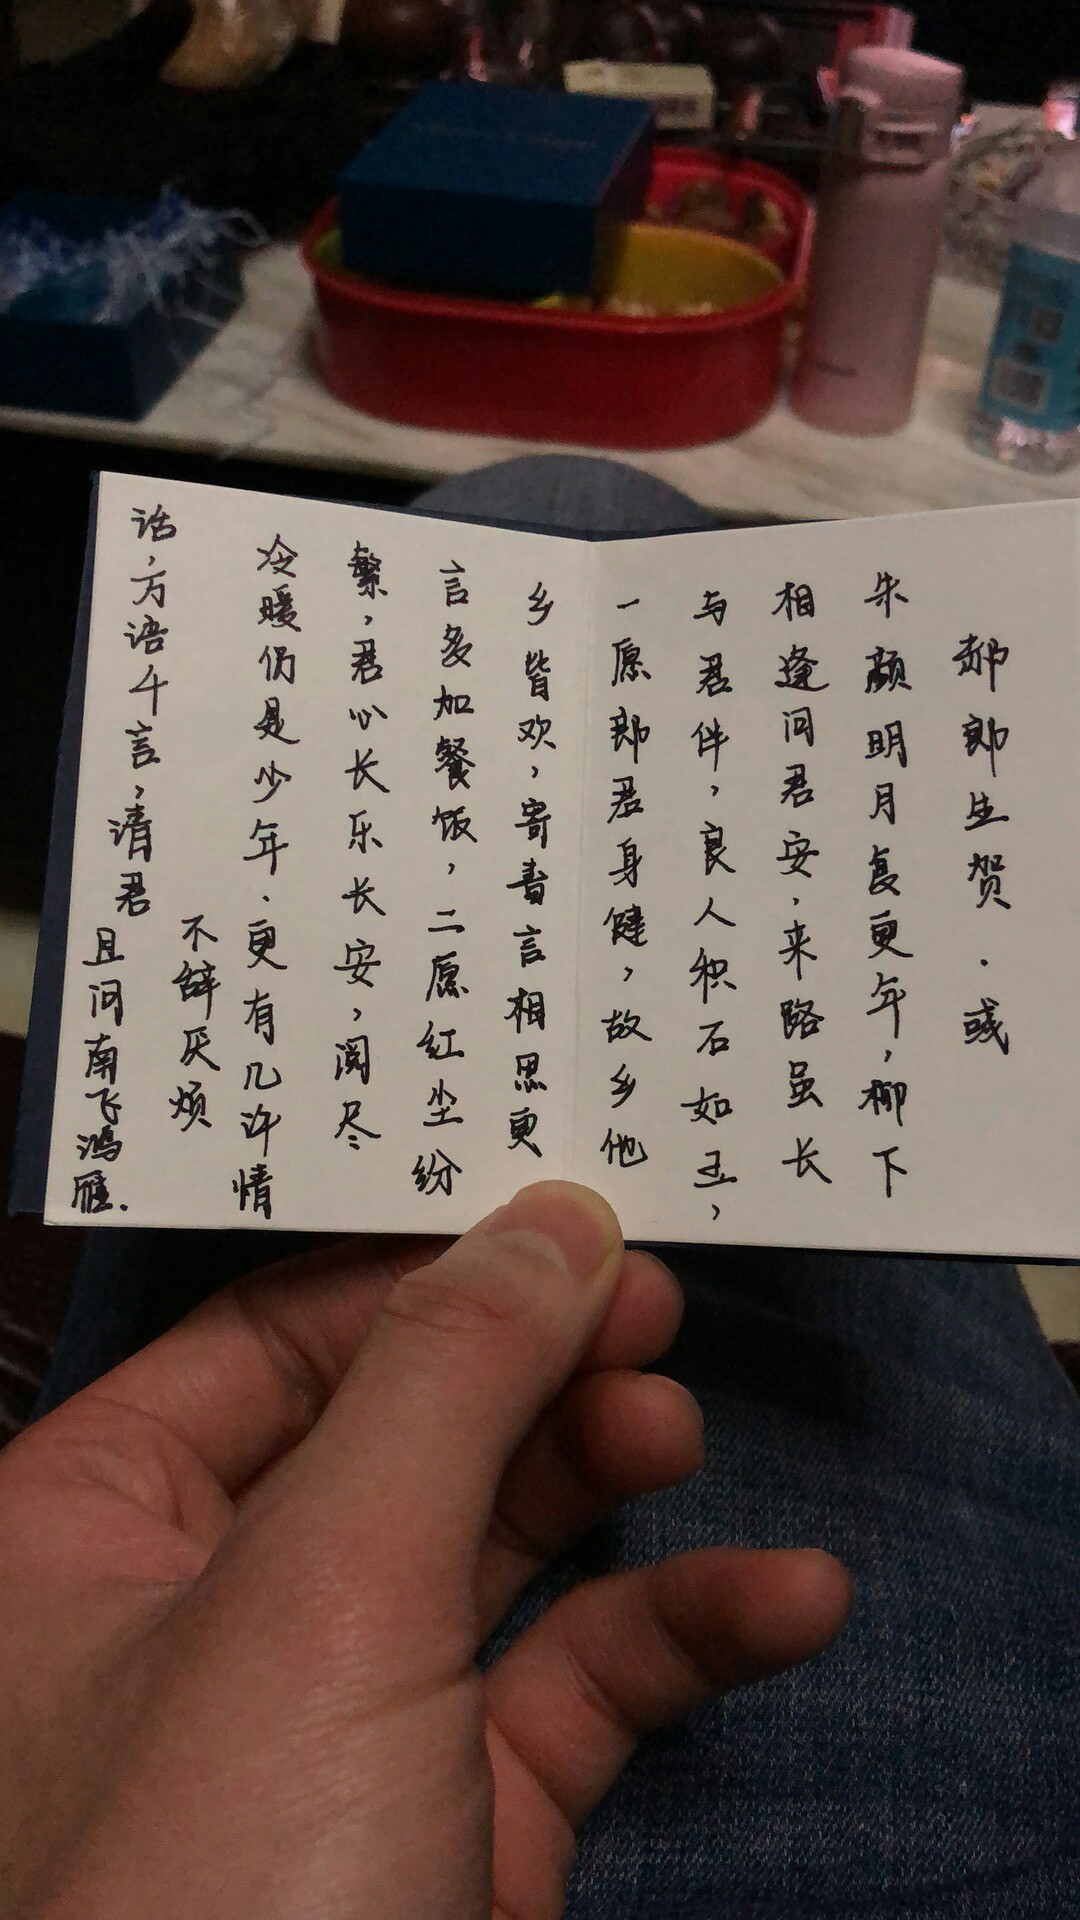 郝郎生贺·彧
朱颜明月复更年，柳下
相逢问君安，来路虽长
与君伴，良人积石如玉，
一愿郎君身健，故乡他
乡皆欢，寄书言相思更
言多加餐饭，二愿红尘纷
繁，君心长乐长安，阅尽
冷暖仍是少年．更有几许情
不辞厌烦
话，万语千言，请君
且问南飞鸿雁．